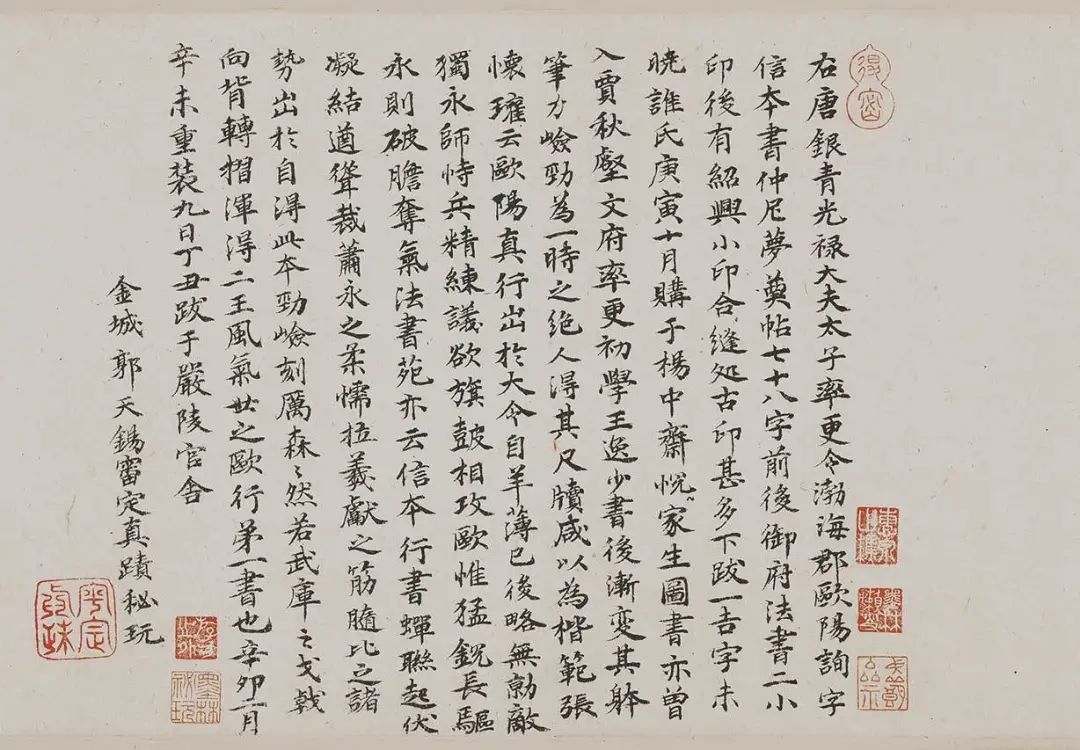 右唐銀青光禄大夫太子率更令渤海郡歐陽詢字
信本書仲尼夢奠帖七十八字前後御府法書二小
印後有紹興小印合縫処古印甚多下跋一吉字未
曉誰氏庚寅十月購于楊中齋悅家生圖書亦曾
入賈秋壑文府率更初學王逸少書後漸變其躰
筆力嶮勁為一時之絶人得其尺牘咸以為楷範張
懷瓘云歐陽真行出於大令自羊薄已後略無勍敵
獨永師恃兵精練議欲旗鼓相攻歐惟猛銳長驅
永則破膽奪氣法書苑亦云信本行書蟬聯起伏
凝結遒聳裁蕭永之柔懦拉羲獻之筋髓比之諸
勢出於自得此本勁嶮刻厲森〻然若武庫之戈戟
向背轉摺渾得二王風氣世之歐行第一書也辛卯二月
辛未重装九日丁丑跋于嚴陵官舎
金城郭天錫審定真蹟秘玩